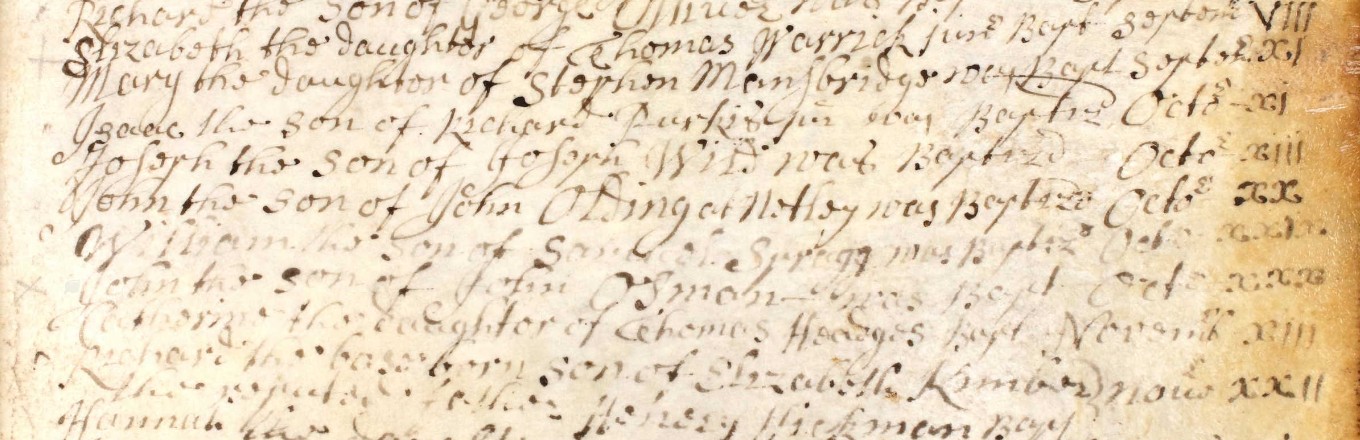 Richard the Son of George was Bapt Septem VIII
Elizabeth the daughter of Thomas Warrick junr Bapt Septe XI
Mary the daughter of Stephen Mansbridge was Bapt Septe
Isaac the Son of Richard Purkis jun was Baptiz Octo XI
Joseph the Son of Joseph was Baptizd Octo XIII
John the Son of John Olding at Netley was Baptizd Octo XX
William the Son of Samuel Spragg was Baptizd Octo
John the Son of John Osman was Bapt Octo XXX
Catherine the daughter of Thomas Hedges Bapt Novemb XIII
Richard the base born Son of Elizabeth Kimber) Nove XXII
the reputed father Henery Hickman Bapt
Hannah the